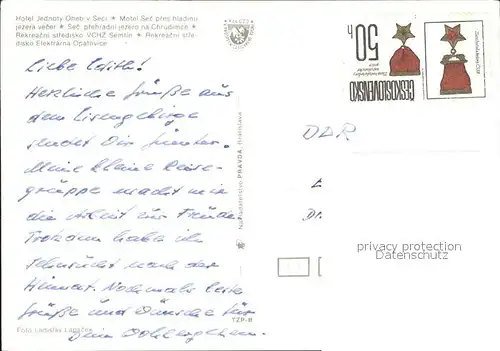 Hotel Jednoty Oheb v Seči ★ Motel Seč přes hladinu
jezera večer ★ Seč, přehradní jezero na Chrudimce ★
Rekreační středisko VCHZ Semtín ★ Rekreační stře-
disko Elektrárna Opatovice
50 h
ČESKOSLOVENSKO
Liebe Edith!
Herzliche Grüße aus
dem Eisengebirge
sendet Dir Günter.
Meine kleine Reise-
gruppe macht mir
die Arbeit zur Freude.
Trotzdem habe ich
Sehnsucht nach der
Heimat. Nochmals beste
Grüße und Wünsche für
Dein
DDR
Nakladatelstvo PRAVDA, Bratislava
privacy protection
Datenschutz
TZP-B
Foto Ladislav